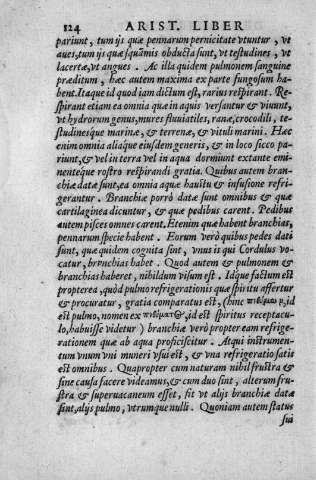 124 ARIST. LIBER
pariunt, tum ijs quæ pennarum pernicitate vtuntur, vt
aues, tum ijs quæ squamis obducta sunt, vt testudines, vt
lacertæ, vt angues. Ac illa quidem pulmonem sanguine
præditum, hæc autem maxima ex parte fungosum ha-
bent. Itaque id quod iam dictum est, rarius respirant. Re-
spirant etiam ea omnia quæ in aquis versantur & viuunt,
vt hydrorum genus, mures fluuiatiles, ranæ, crocodili, te-
studinesque marinæ, & terrenæ, & vituli marini. Hæc
enim omnia aliaque eiusdem generis, & in loco sicco pa-
riunt, & vel in terra vel in aqua dormiunt extante emi-
nenteque rostro respirandi gratia. Quibus autem bran-
chiæ datæ sunt, ea omnia aquæ haustu & infusione refri-
gerantur. Branchiæ porrò datæ sunt omnibus & quæ
cartilaginea dicuntur, & quæ pedibus carent. Pedibus
autem pisces omnes carent. Etenim quæ habent branchias,
pennarum specie habent. Eorum verò quibus pedes dati
sunt, quæ quidem cognita sint, vnus is qui Cordulus vo-
catur, brnnchias habet. Quod autem & pulmonem &
branchias haberet, nihildum visum est. Idque factum est
propterea, quòd pulmo refrigerationis quæ spiritu affertur
& procuratur, gratia comparatus est, (hinc πνεύμων, id
est pulmo, nomen ex πνεύματος, id est spiritus receptacu-
lo, habuisse videtur) branchiæ verò propter eam refrige-
rationem quæ ab aqua proficiscitur. Atqui instrumen-
tum vnum vni muneri vsui est, & vna refrigeratio satis
est omnibus. Quapropter cum naturam nihil frustra &
sine causa facere videamus, & cum duo sint, alterum fru-
stra & superuacaneum esset, fit vt alijs branchiæ datæ
sint, alijs pulmo, vtrumque nulli. Quoniam autem status
sui